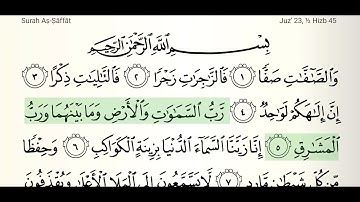 Surah As-Ṣāffāt
Juz' 23, ½ Hizb 45
بِسْمِ اللَّهِ الرَّحْمَٰنِ الرَّحِيمِ
وَالصَّٰٓفَّٰتِ صَفًّا ١ فَالزَّٰجِرَٰتِ زَجْرًا ٢ فَالتَّٰلِيَٰتِ ذِكْرًا ٣
إِنَّ إِلَٰهَكُمْ لَوَٰحِدٌ ٤ رَّبُّ السَّمَٰوَٰتِ وَالْأَرْضِ وَمَا بَيْنَهُمَا وَرَبُّ
الْمَشَٰرِقِ ٥ إِنَّا زَيَّنَّا السَّمَآءَ الدُّنْيَا بِزِينَةٍ الْكَوَاكِبِ ٦ وَحِفْظًا
مِّن كُلِّ شَيْطَٰنٍ مَّارِدٍ ٧ لَّا يَسَّمَّعُونَ إِلَى الْمَلَإِ الْأَعْلَىٰ وَيُقْذَفُونَ